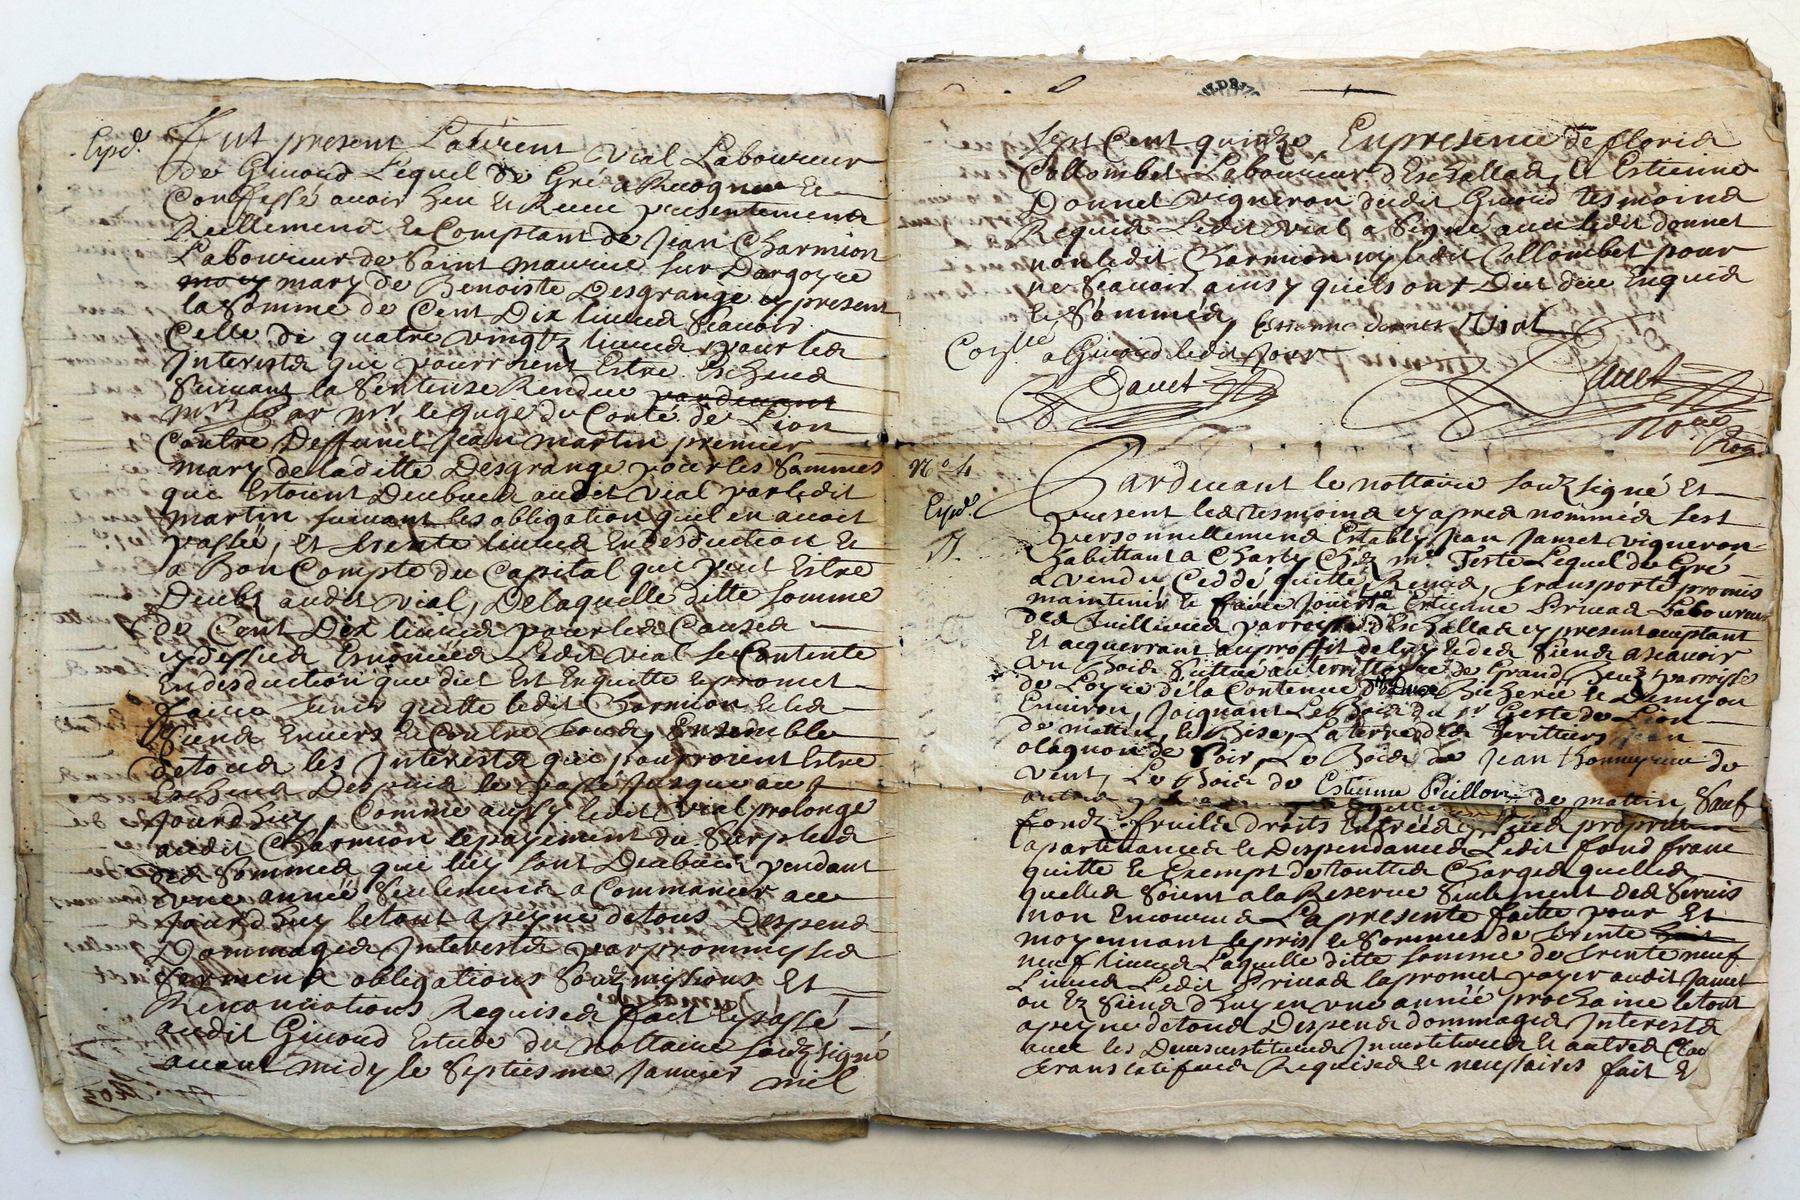 Expd.
Fut present Laurent Vial Laboureur
de Givord Lequel de Gré a Recogneu Et
Confessé avoir heu Et Receu presentement
Reellement Et Comptant de Jean Charmion
Laboureur de Saint maurice sur Dargoyre
mary de Benoiste Desgrange cy present
la Somme de Cent Dix livres Scavoir
Celle de quatre vingtz livres pour les
Interests que pourroient Estre Escheus
Suivant la Sentense Rendue pardevant
par mr le Juge du Conté de Lion
Contre Deffunct Jean martin premier
mary de laditte Desgrange pour les Sommes
que Estoient Deubues audit Vial par ledit
martin suivant les obligation quil en avoit
passée, Et trente livres En desduction Et
a Bon Compte du Capital que peut Estre
Deubz audit Vial, De laquelle ditte Somme
de Cent Dix livres pour les Causes
cy dessus Enoncées Ledit Vial Se Contente
En desduction que dict Est En quitte Et promet
faire tenir quitte ledit Charmion Et les
Siens Envers Et Contre tous, Ensemble
de tous les Interests que pourroient Estre
Escheus Despuis le passé Jusques au
Jourdhuy, Comme aussy ledit Vial prolonge
audit Charmion le payement du Surplus
des Sommes que luy sont Deubues pendant
une année Seulement a Commancer ce
Jourdhuy le tout a peyne de tous Despens
Dommages Interests par promesses
serment obligations Soubzmissions Et
Renonciations Requises fait Et passé
audit Givord Estude du nottaire Soubzsigné
avant midy le Septiesme Janvier mil
Sept Cent quinze, En presence de floris
Collombet Laboureur d'Eschallas, Et Estienne
Donnet vigneron dudit Givord tesmoins
Requis Ledit Vial a Signé avec ledit donnet
non ledit Charmion ny ledit Collombet pour
ne Scavoir ainsy quils ont Dict deue Enquis
Et Sommés, Estienne donnet Vial
a Givord ledit Jour
Davet
Davet
Nore Roy.
No. 4
Expd.
Pardevant le nottaire soubzsigné Et
present les tesmoins cy apres nommés sest
personnellement Estably Jean Jamet vigneron
habittant a Charly Chez mr Teste Lequel de Gré
a vendu Ceddé quitté Remis, transporté promis
maintenir Et faire Jouir a Estienne Privas Laboureur
des parroisse d'Eschallas cy present acceptant
Et acquerrant au proffit de luy Et des Siens ascavoir
un Bois Scittué au territtoire de Grand parroisse
de Loyre de la Contenue Bicherée Et Demy ou
Environ, Joignant Le Bois du Sr Teste de Lion
de mattin, Et Bise, La terre des heritiers Jean
olagnon de Soir, Le Bois de Jean de
vent, Le Bois de Estienne Pullon de mattin, Sauf
fondz, fruilie droits Entrées
apartenances Et Despendances Ledit fond franc
quitte Et Exempt de touttes Charges quelles
quelles Soient a la Reserve Seulement des Servis
non Encourus La presente faitte pour Et
moyennant le pris Et Somme de trente
neuf livres Laquelle ditte Somme de trente neuf
Livres Ledit Privas la promet payer audit Jamet
ou Ez Siens dhuy en une année prochaine le tout
a peyne de tous Despens dommages Interests
avec les Devestitures Investitures Et autres
translatifves Requises Et necessaires fait E